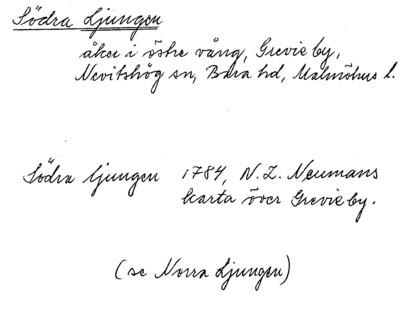 Södra Ljungen
åker i östre vång, Grevie by,
Nevitshög sn, Bara hd, Malmöhus l.
Södra ljungen 1784, N. Z. Neumans
karta över Grevie by.
(se Norra Ljungen)